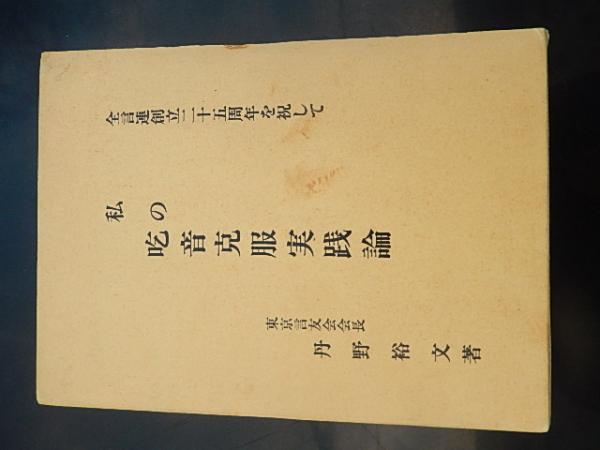 全言連創立二十五周年を祝して
私の
吃音克服実践論
東京言友会会長
丹野裕文著